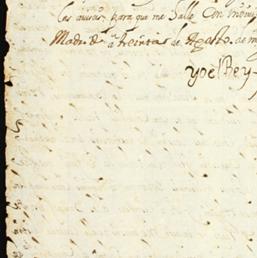 los avisos, para que me halle con
Madrid a treinta de Agosto de m
yo el Rey